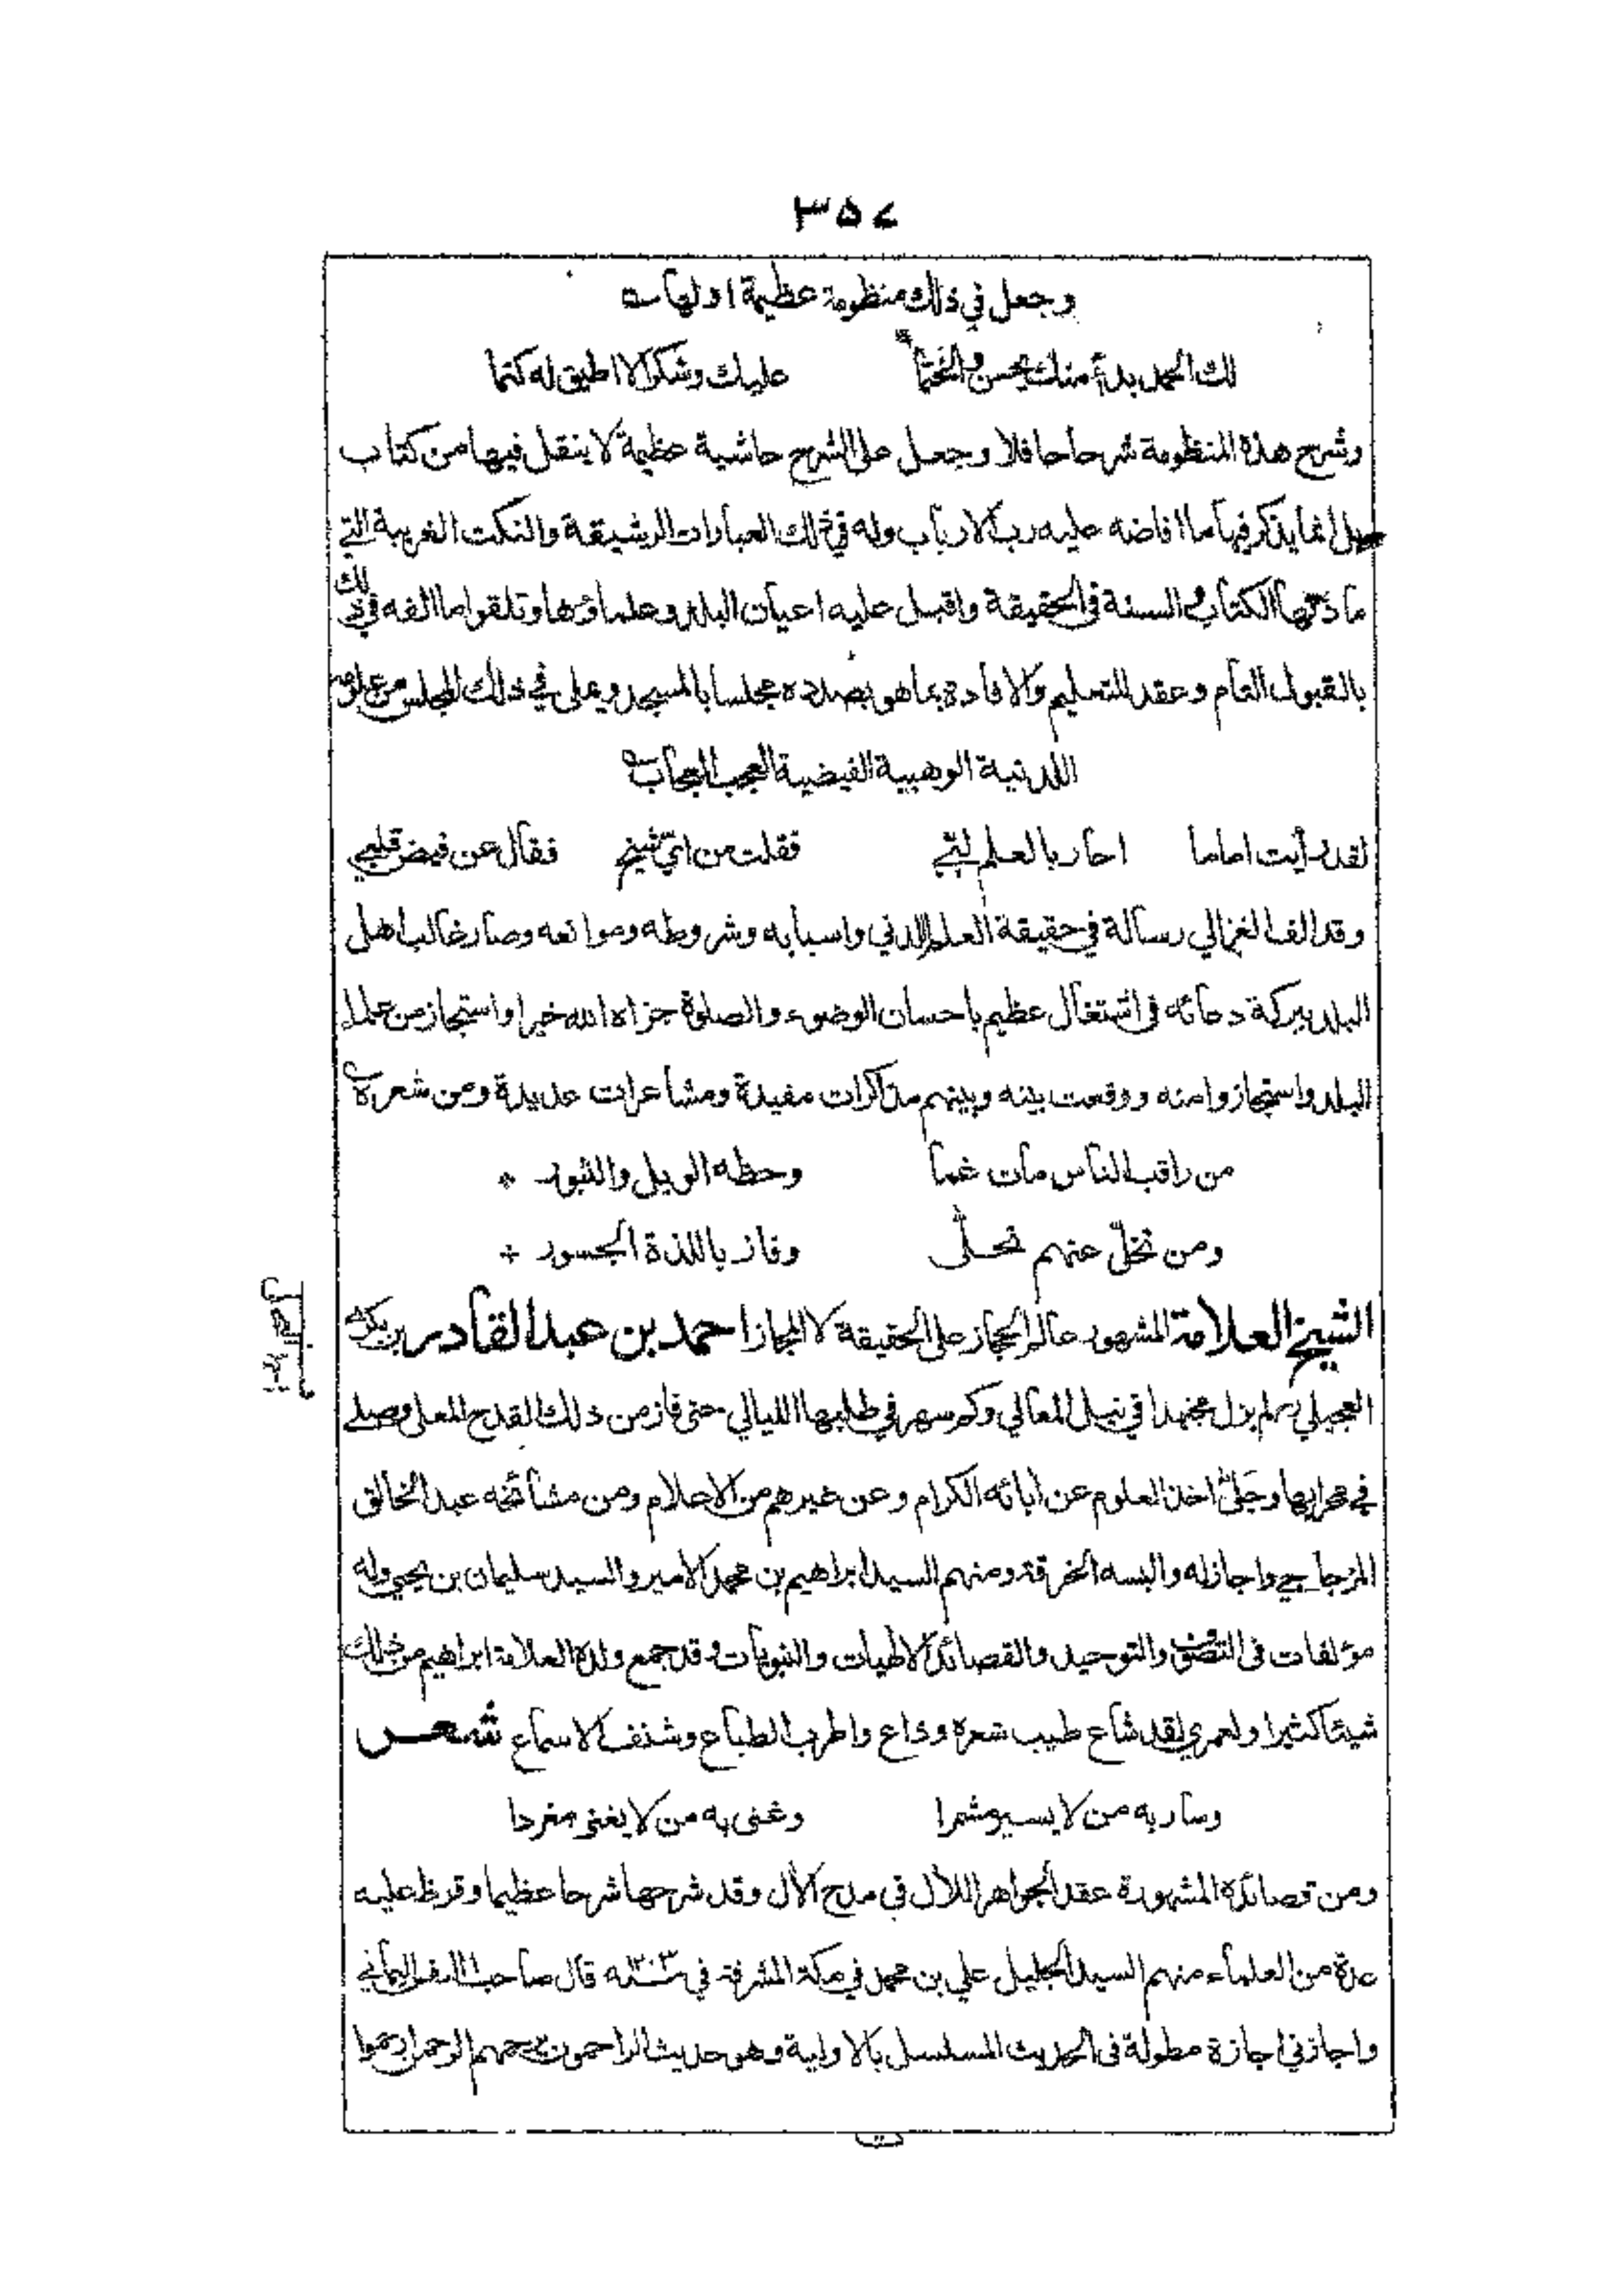 ٣٥٧
وجعل في ذلك منظومة عظيمة اولها
لك الحمد بدأ منك يحسن والختما عليك وشكرا لا اطيق له كتما
وشرح هذه المنظومة شرحا حافلا وجعل على الشرح حاشية عظيمة لا ينقل فيها من كتاب
بل انما يذكر فيها ما افاضه عليه رب الارباب وله في ذلك العبارات الرشيقة والنكت الغريبة التي
مادتها الكتاب والسنة في الحقيقة واقبل عليه اعيان البلد وعلماؤها وتلقوا ما الفه في ذلك
بالقبول التام وعقد للتعليم والافادة بما هو بصدده مجلسا بالمسجد ويملي في ذلك المجلس من علومه
اللدنية الوهبية الفيضية العجب العجاب
لقد رأيت اماما احار بالعلم لبّي فقلت من ايّ شيخ فقال عن فيض قلبي
وقد الف الغزالي رسالة في حقيقة العلم اللدني واسبابه وشروطه وموانعه وصار غالب اهل
البلد ببركة دعائه في اشتغال عظيم باحسان الوضوء والصلوة جزاه الله خيرا واستجاز من علماء
البلد واستجازوا منه ووقعت بينه وبينهم مذاكرات مفيدة ومشاعرات عديدة ومن شعره
من راقب الناس مات غما وحظه الويل والثبور
ومن تخلّ عنهم تحلّى وفاز باللذة الجسور
الشيخ العلامة المشهور عالم الحجاز على الحقيقة لا المجاز احمد بن عبد القادر بن بكري
العجيلي لم يزل مجتهدا في نيل المعالي وكم سهر في طلبها الليالي حتى فاز من ذلك القدح المعلى وصلى
في محرابها وجَلّى اخذ العلوم عن ابائه الكرام وعن غيرهم من الاعلام ومن مشائخه عبد الخالق
المزجاجي واجاز له والبسه الخرقة ومنهم السيد ابراهيم بن محمد الامير والسيد سليمان بن يحيى وله
مؤلفات في التصوف والتوحيد والقصائد الالهيات والنبويات وقد جمع ولده العلامة ابراهيم من ذلك
شيئا كثيرا ولعمري لقد شاع طيب شعره وذاع واطرب الطباع وشنف الاسماع شعر
وسار به من لا يسير مشمرا وغنى به من لا يغنى مغردا
ومن قصائده المشهورة عقد الجواهر اللال في مدح الآل وقد شرحها شرحا عظيما وقرظ عليه
عدة من العلماء منهم السيد الجليل علي بن محمد في مكة المشرفة في قال صاحب النفس اليماني
واجازني اجازة مطولة في الحديث المسلسل بالاولية وهو حديث الراحمون يرحمهم الرحمن ارحموا